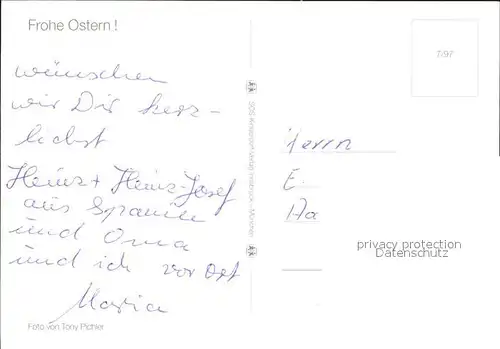 Frohe Ostern!
wünschen
wir Dir herz-
lichst
Heinz + Heinz-Josef
aus Spanien
und Oma
und ich vor Ort
Maria
Foto von Tony Pichler
7/97
Herrn
E
Ha
privacy protection
Datenschutz